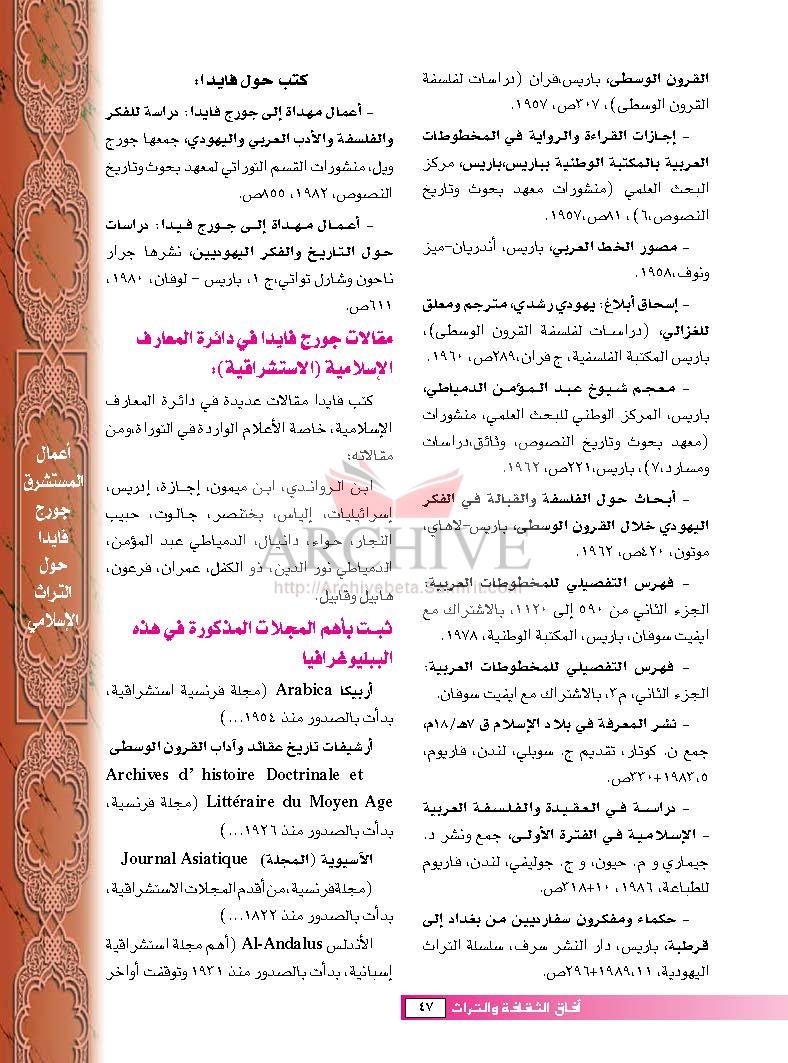 القرون الوسطى، باريس،فران (دراسات لفلسفة
القرون الوسطى)، ٣٠٧ص، ١٩٥٧.
- إجازات القراءة والرواية في المخطوطات
العربية بالمكتبة الوطنية بباريس،باريس، مركز
البحث العلمي (منشورات معهد بحوث وتاريخ
النصوص،٦)، ٨١ص،١٩٥٧.
- مصور الخط العربي، باريس، أندريان-ميز
ونوف،١٩٥٨.
- إسحاق أبلاغ: يهودي رشدي، مترجم ومعلق
للغزالي، (دراسات لفلسفة القرون الوسطى)،
باريس المكتبة الفلسفية، ج فران،٢٨٩ص، ١٩٦٠.
- معجم شيوخ عبد المؤمن الدمياطي،
باريس، المركز الوطني للبحث العلمي، منشورات
(معهد بحوث وتاريخ النصوص، وثائق،دراسات
ومسارد،٧)، باريس،٢٢١ص، ١٩٦٢.
- أبحاث حول الفلسفة والقبالة في الفكر
اليهودي خلال القرون الوسطى، باريس-لاهاي،
موتون، ٤٢٠ص، ١٩٦٢.
- فهرس التفصيلي للمخطوطات العربية:
الجزء الثاني من ٥٩٠ إلى ١١٢٠، بالاشتراك مع
ايفيت سوفان، باريس، المكتبة الوطنية، ١٩٧٨.
- فهرس التفصيلي للمخطوطات العربية:
الجزء الثاني، م٣، بالاشتراك مع ايفيت سوفان.
- نشر المعرفة في بلاد الإسلام ق ٧هـ/١٨م،
جمع ن. كوتار، تقديم ج. سوبلي، لندن، فاريوم،
١٩٨٣،٥+٣٣٠ص.
- دراسة في العقيدة والفلسفة العربية
- الإسلامية في الفترة الأولى، جمع ونشر د.
جيماري و م. حيون، و ج. جوليفي، لندن، فاريوم
للطباعة، ١٩٨٦، ١٠+٣١٨ص.
- حكماء ومفكرون سفارديين من بغداد إلى
قرطبة، باريس، دار النشر سرف، سلسلة التراث
اليهودية، ١٩٨٩،١١+٢٩٦ص.
كتب حول فايدا:
- أعمال مهداة إلى جورج فايدا: دراسة للفكر
والفلسفة والأدب العربي واليهودي، جمعها جورج
ويل، منشورات القسم التوراتي لمعهد بحوث وتاريخ
النصوص، ١٩٨٢، ٨٥٥ص.
- أعمال مهداة إلى جورج فيدا: دراسات
حول التاريخ والفكر اليهوديين، نشرها جرار
ناحون وشارل تواتي،ج ١، باريس - لوفان، ١٩٨٠،
٦١١ص.
مقالات جورج فايدا في دائرة المعارف
الإسلامية (الاستشراقية):
كتب فايدا مقالات عديدة في دائرة المعارف
الإسلامية، خاصة الأعلام الواردة في التوراة،ومن
مقالاته:
ابن الرواندي، ابن ميمون، إجازة، إدريس،
إسرائيليات، إلياس، بختنصر، جالوت، حبيب
النجار، حواء، دانيال، الدمياطي عبد المؤمن،
الدمياطي نور الدين، ذو الكفل، عمران، فرعون،
هابيل وقابيل.
ثبت بأهم المجلات المذكورة في هذه
الببليوغرافيا
أربيكا Arabica (مجلة فرنسية استشراقية،
بدأت بالصدور منذ ١٩٥٤...)
أرشيفات تاريخ عقائد وآداب القرون الوسطى
Archives d' histoire Doctrinale et
Littéraire du Moyen Age (مجلة فرنسية،
بدأت بالصدور منذ ١٩٢٦...)
الآسيوية (المجلة) Journal Asiatique
(مجلة فرنسية،من أقدم المجلات الاستشراقية،
بدأت بالصدور منذ ١٨٢٢...)
الأندلس Al-Andalus (أهم مجلة استشراقية
إسبانية، بدأت بالصدور منذ ١٩٣١ وتوقفت أواخر
أعمال
المستشرق
جورج
فايدا
حول
التراث
الإسلامي
ARCHIVE
http://Archivebeta.Sakhrit.com
آفاق الثقافة والتراث ٤٧